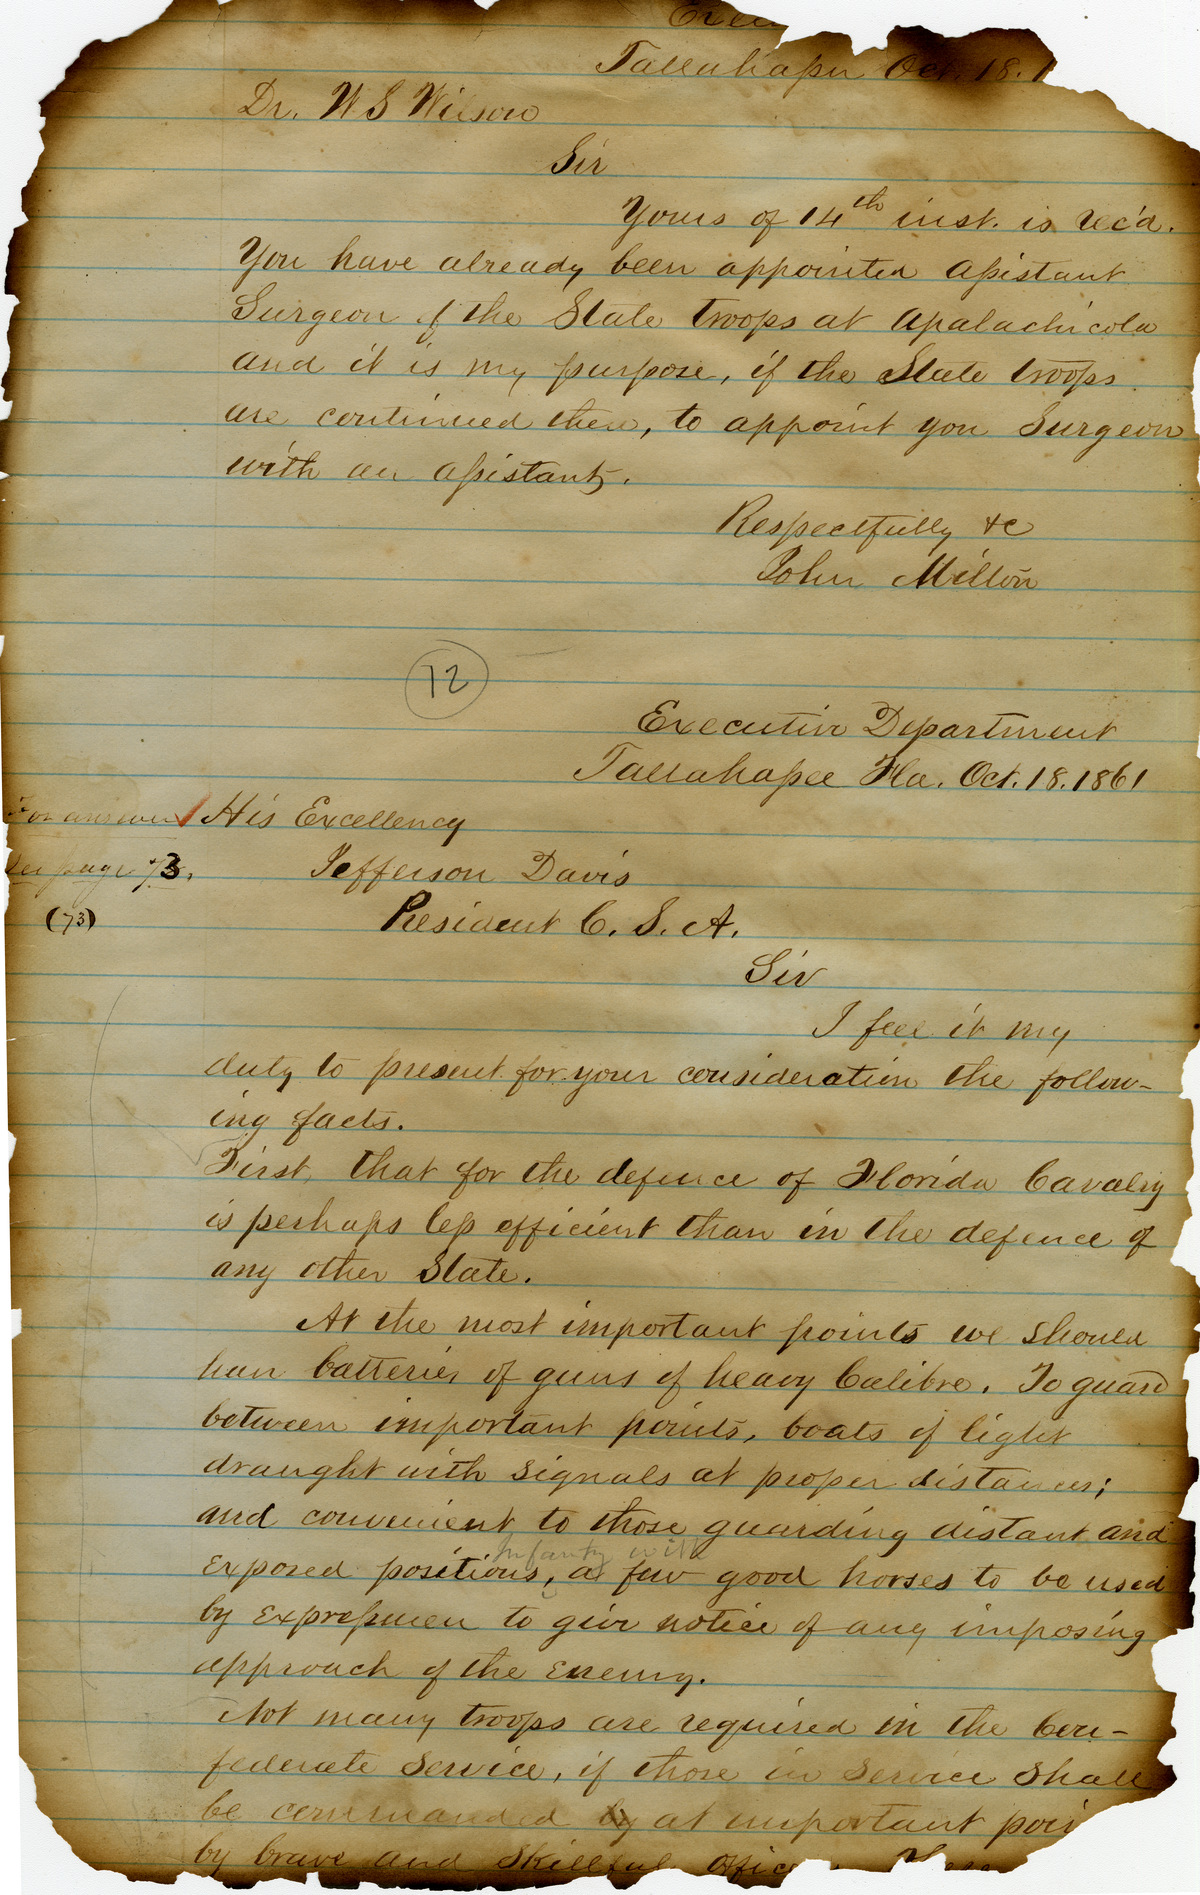 Tallahassee Oct. 18. 1
Dr. W S Wilson
Sir
Yours of 14th inst. is rec'd.
You have already been appointed Assistant
Surgeon of the State troops at Apalachicola
and it is my purpose, if the State troops
are continued there, to appoint you Surgeon
with an assistant.
Respectfully &c
John Milton
12
Executive Department
Tallahassee Fla. Oct. 18. 1861
For answer
See page 73.
(73)
His Excellency
Jefferson Davis
President C. S. A.
Sir
I feel it my
duty to present for your consideration the follow-
ing facts.
First, that for the defence of Florida Cavalry
is perhaps less efficient than in the defence of
any other State.
At the most important points we should
have batteries of guns of heavy Calibre. To guard
between important points, boats of light
draught with signals at proper distances;
and convenient to those guarding distant and
Infantry with
exposed positions, a few good horses to be used
by expressmen to give notice of any imposing
approach of the Enemy.
Not many troops are required in the Con-
federate service, if those in service shall
be commanded by at important poi
by brave and skillful offic